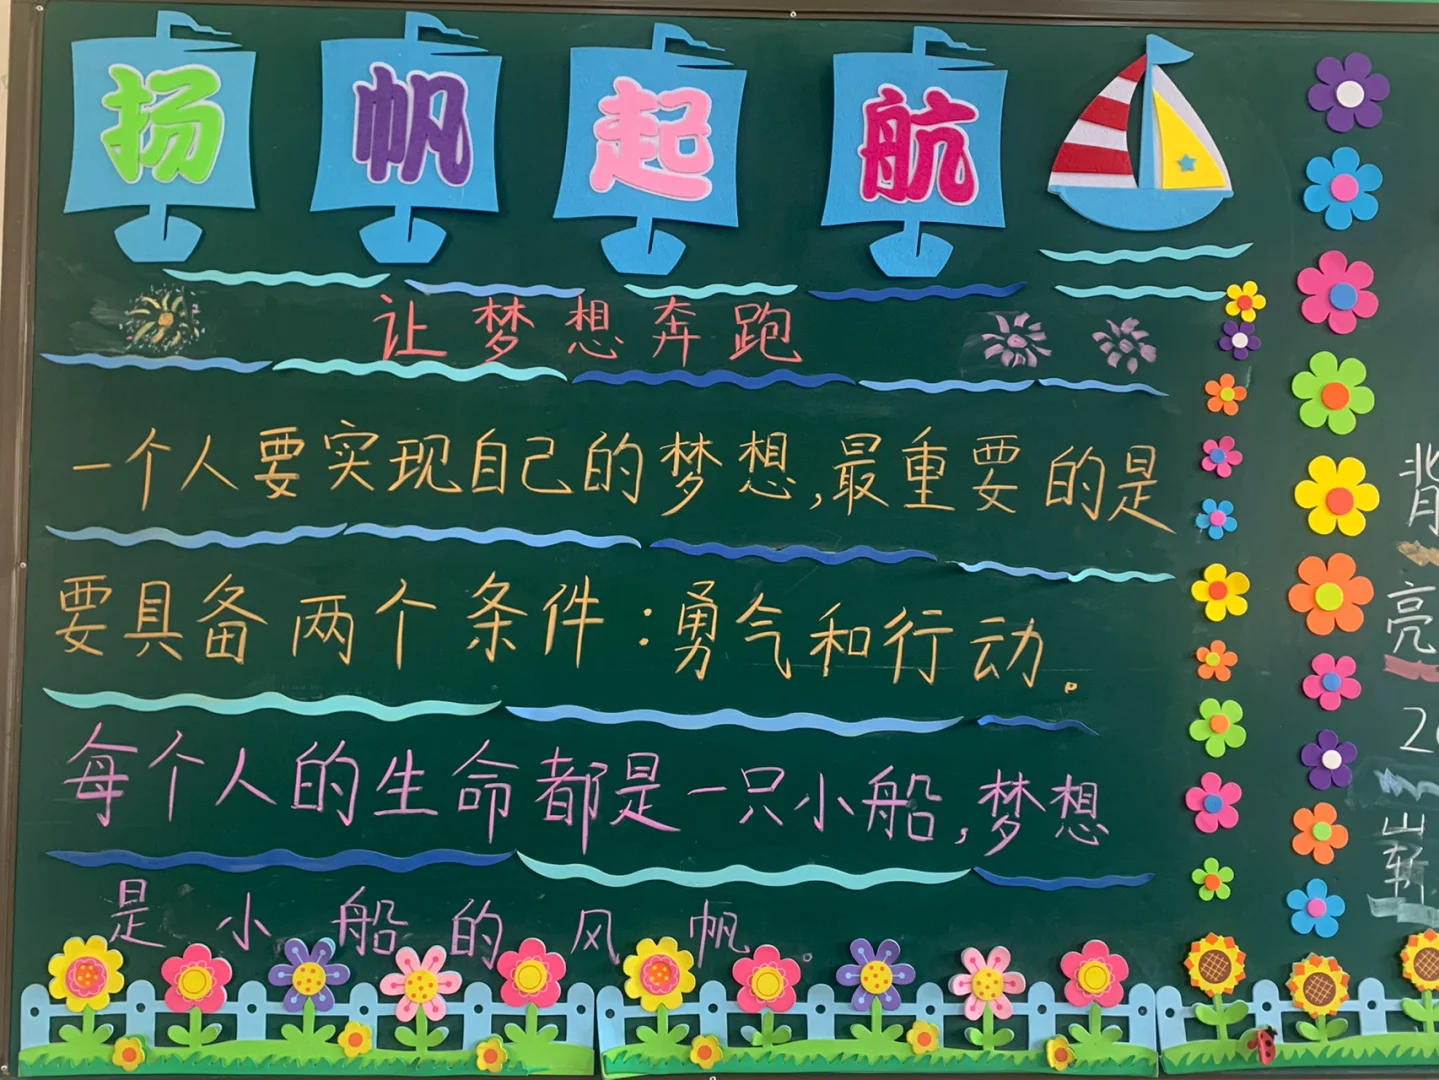 扬帆起航
让梦想奔跑
一个人要实现自己的梦想,最重要的是
要具备两个条件:勇气和行动。
每个人的生命都是一只小船,梦想
是小船的风帆。
背
亮
2
崭